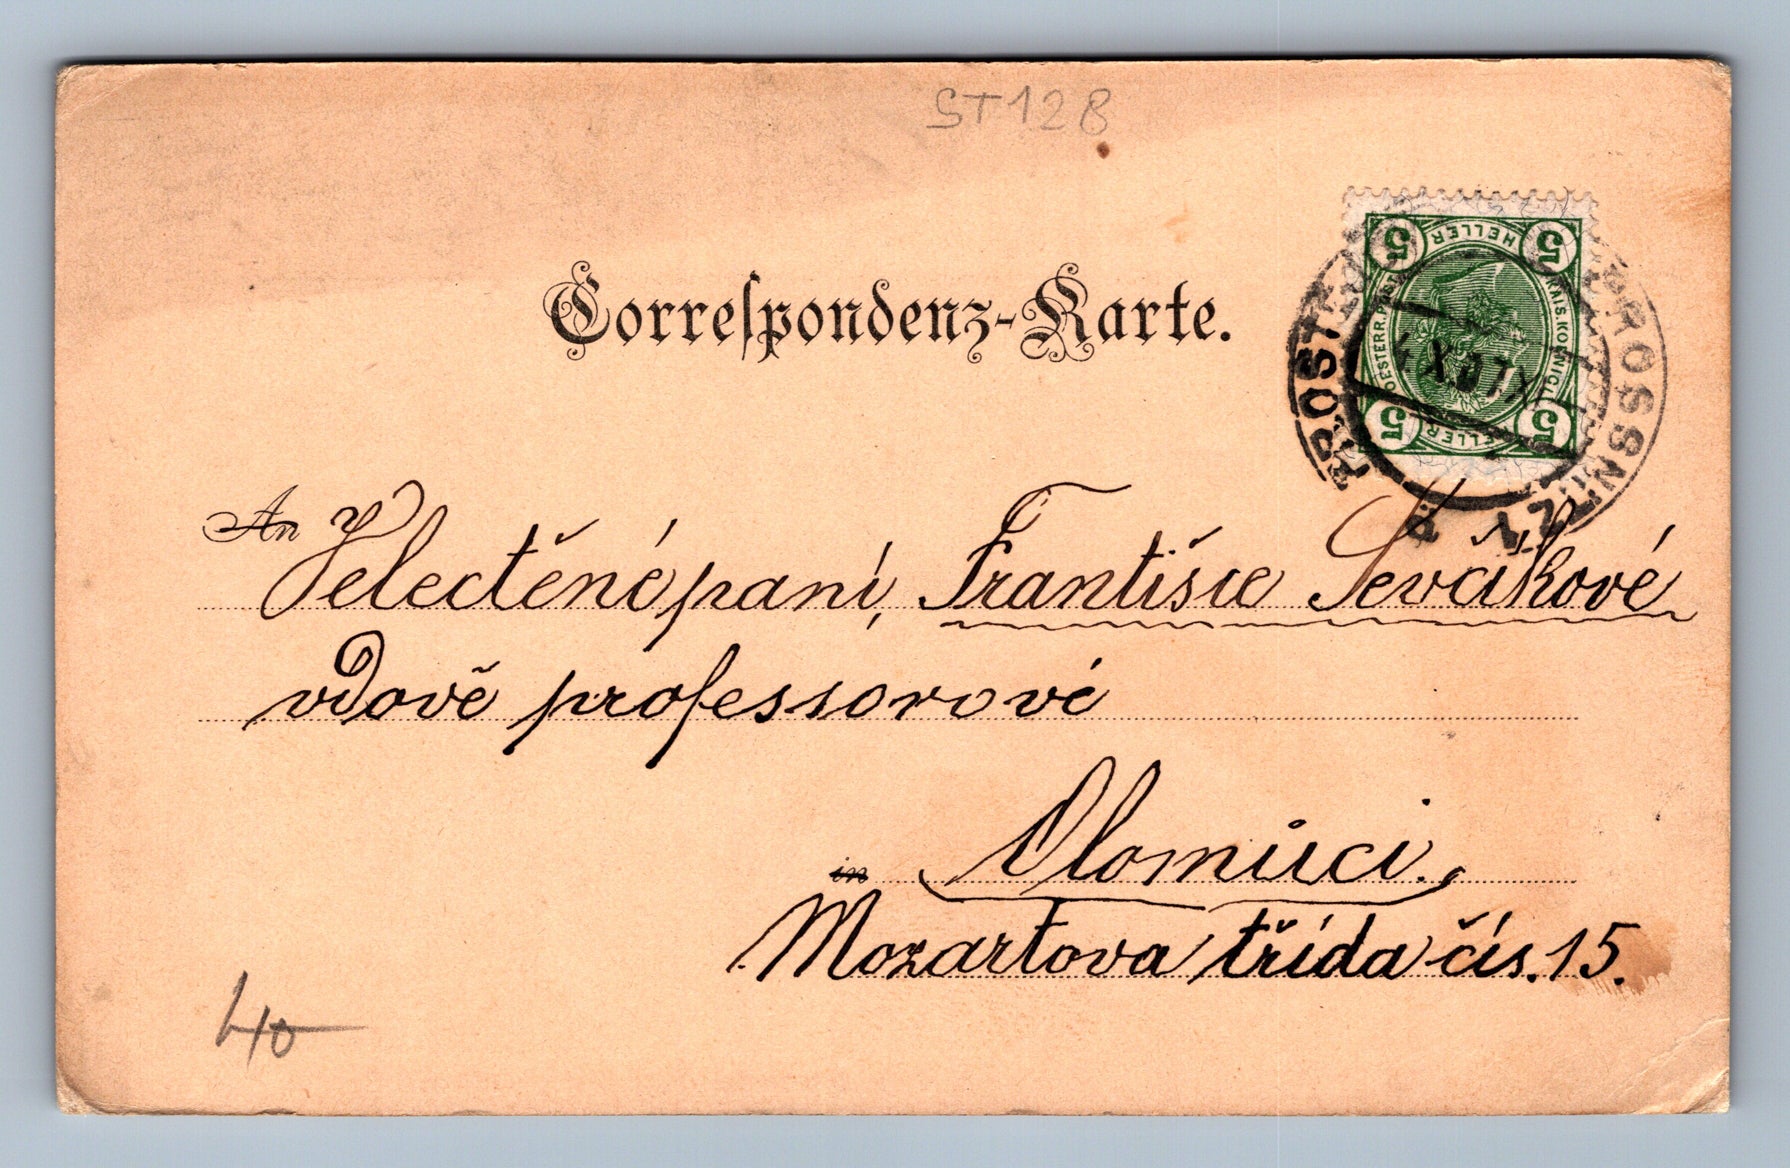 ST128
Correspondenz-Karte.
5 HELLER 5
OESTERR. POST
KAIS. KOENIGL.
5 HELLER 5
PROSTĚJOV
PROSSNITZ 1
4 X 07 X
An Velectěné paní, Františce Ševčíkové
vdově professorové
in Olomúci.,
Mozartova třída čís. 15.
40